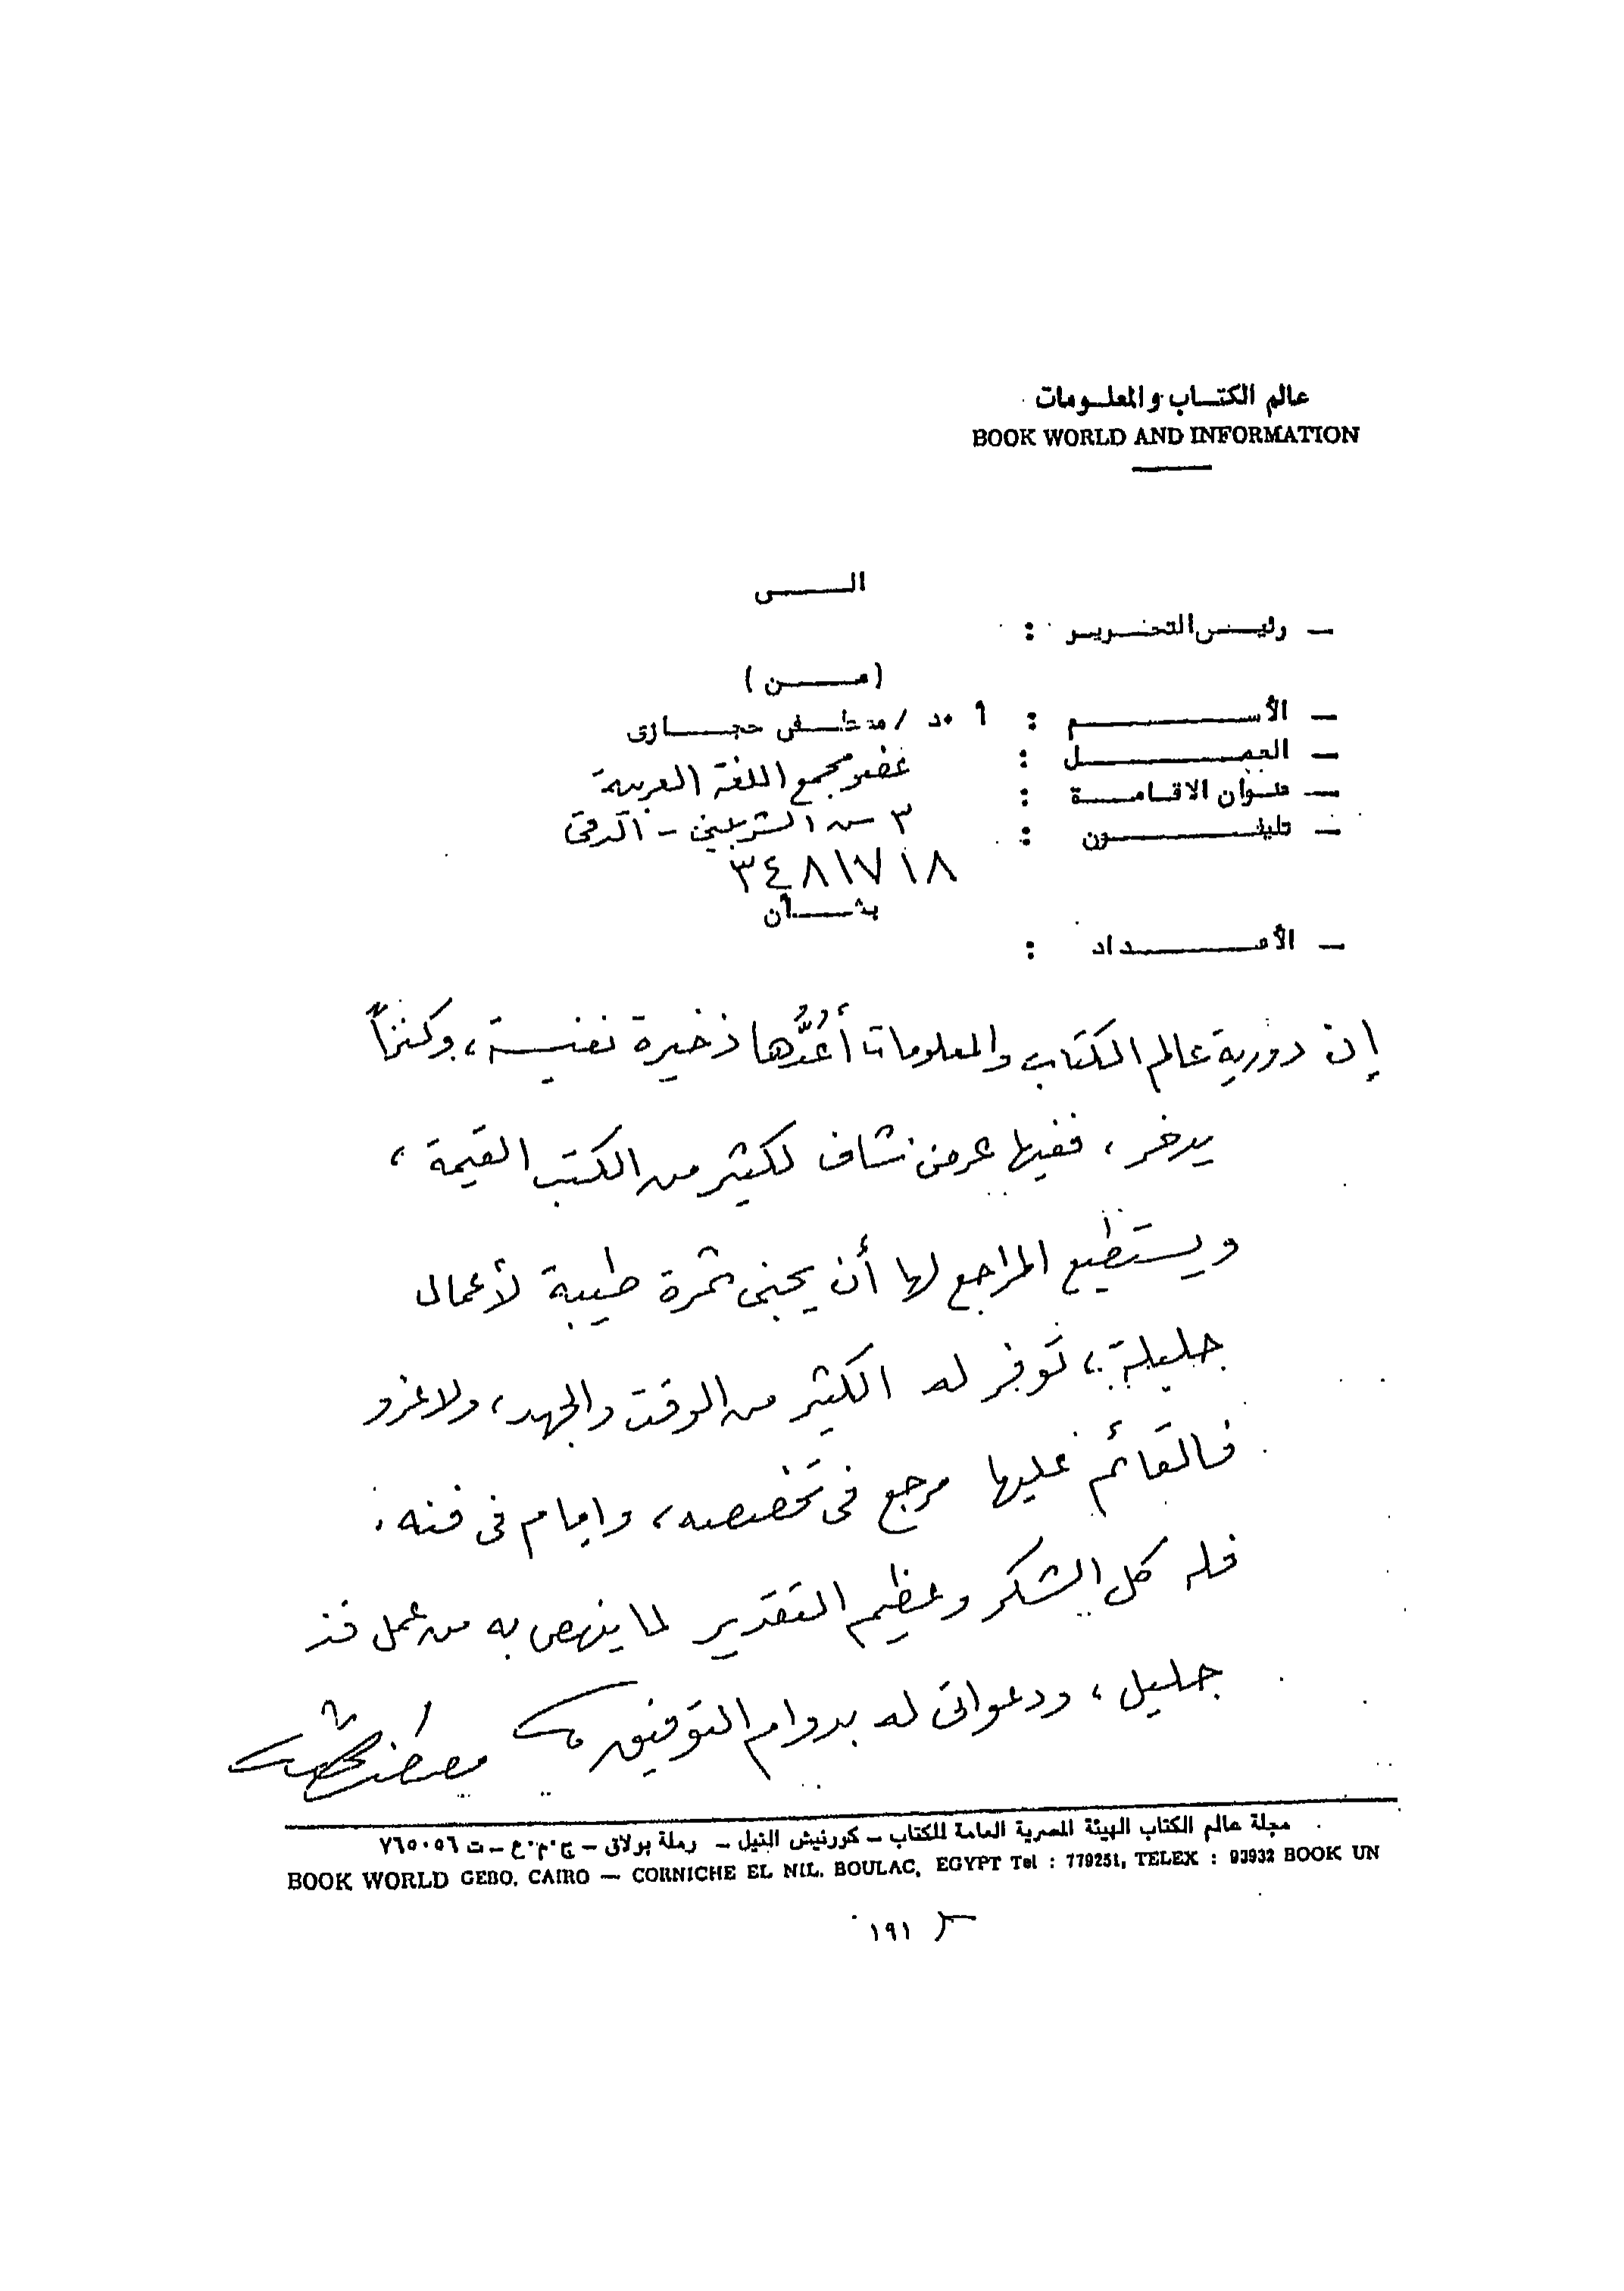 عالم الكتاب والمعلومات
BOOK WORLD AND INFORMATION
الى
— رئيس التحرير :
(من)
— الأسم : أ ٠د / مصطفى حجازى
— العمل : عضو مجمع اللغة العربية
— عنوان الاقامة : ٣ ش الشربينى - الدقى
— تليفون : ٣٤٨١٧١٨
بشأن
— الأعداد :
إن دورية عالم الكتاب والمعلومات أعُدُّها ذخيرة نفيسة، وكنزاً
يدخر، ففيها عرض شاف لكثير من الكتب القيمة،
ويستطيع المراجع لها أن يجنى ثمرة طيبة لأعمال
جليلة، توفر له الكثير من الوقت والجهد، ولا غرو
فالقائم عليها مرجع فى تخصصه، وإمام فى فنه.
فله كل الشكر وعظيم التقدير لما ينهض به من عمل فذ
جليل، ودعواتى له بدوام التوفيق
مصطفى حجازى
مجلة عالم الكتاب الهيئة المصرية العامة للكتاب – كورنيش النيل – رملة بولاق – ج٠م٠ع – ت ٧٦٥٠٥٦
BOOK WORLD GEBO, CAIRO — CORNICHE EL NIL. BOULAC, EGYPT Tel : 779251, TELEX : 93932 BOOK UN
١٩١